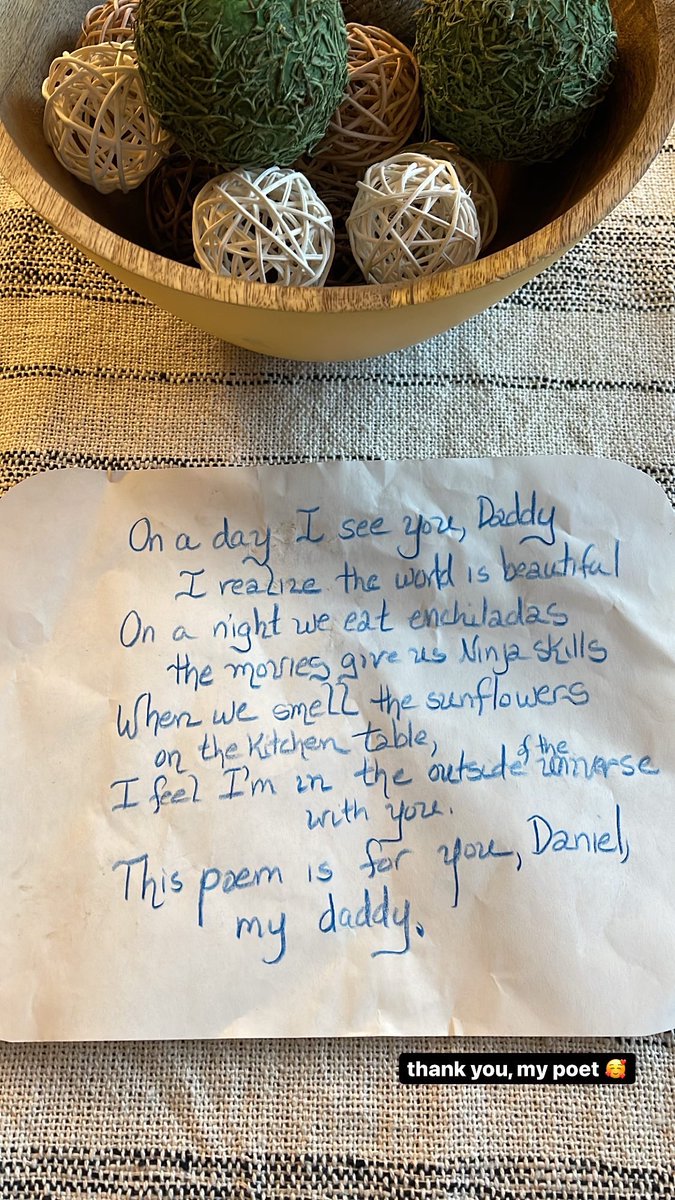 On a day I see you, Daddy
I realize the world is beautiful
On a night we eat enchiladas
the movies give us Ninja skills
When we smell the sunflowers
on the kitchen table,
I feel I'm in the outside of the universe
with you.
This poem is for you, Daniel,
my daddy.
thank you, my poet 🥰